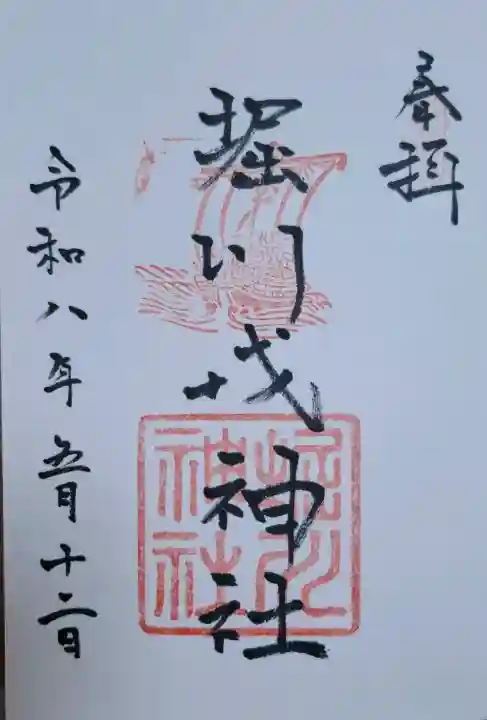 奉拝
堀川戎神社
令和八年五月十二日
堀川
神社